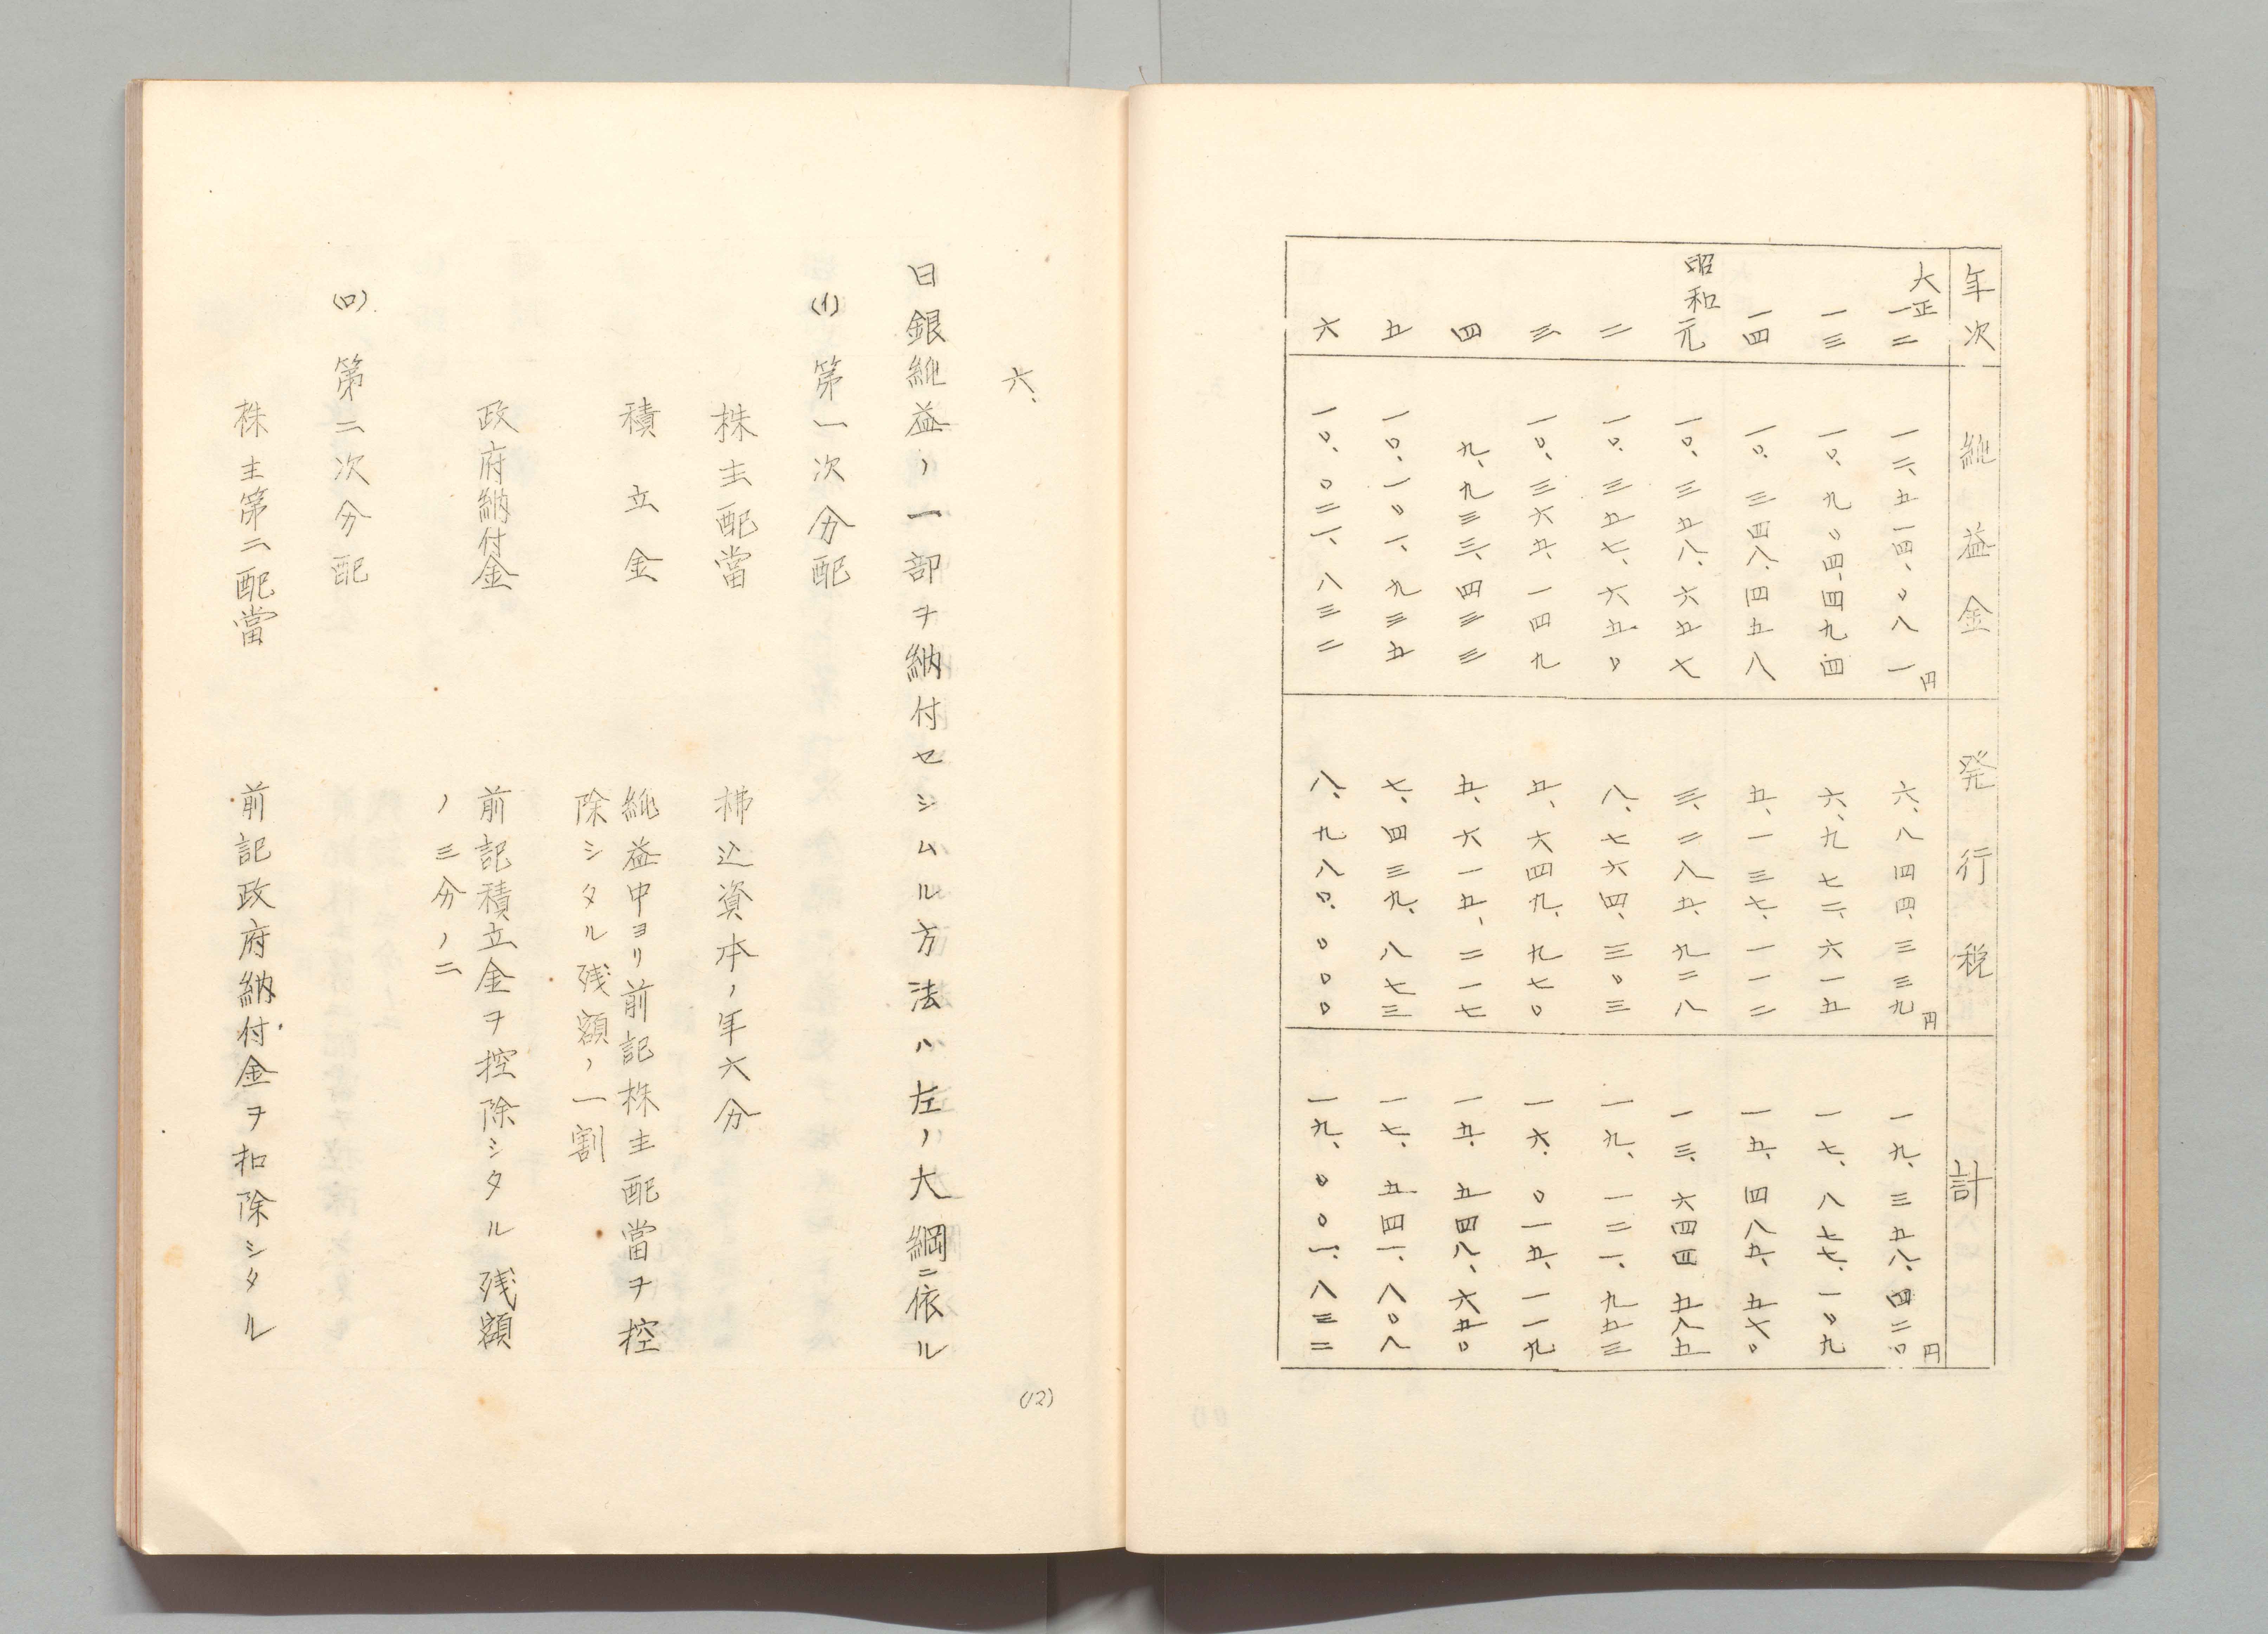 年次 純益金 発行税 計
大正一二 一二、五一四、〇八一円 六、八四四、三三九円 一九、三五八、四二〇円
一三 一〇、九〇四、四九四 六、九七二、六一五 一七、八七七、一〇九
一四 一〇、三四八、四五八 五、一三七、一一二 一五、四八五、五七〇
昭和元 一〇、三五八、六五七 三、二八五、九二八 一三、六四四五八五
二 一〇、三五七、六五〇 八、七六四、三〇三 一九、一二一、九五三
三 一〇、三六五、一四九 五、六四九、九七〇 一六、〇一五、一一九
四 九、九三三、四三三 五、六一五、二一七 一五、五四八、六五〇
五 一〇、一〇一、九三五 七、四三九、八七三 一七、五四一、八〇八
六 一〇、〇二一、八三二 八、九八〇、〇〇〇 一九、〇〇一、八三二
六、
日銀純益ノ一部ヲ納付セシムル方法ハ左ノ大綱ニ依ル
(イ) 第一次分配
株主配當 拂込資本ノ年六分
積立金 純益中ヨリ前記株主配當ヲ控
除シタル残額ノ一割
政府納付金 前記積立金ヲ控除シタル残額
ノ三分ノ二
(ロ) 第二次分配
株主第二配當 前記政府納付金ヲ扣除シタル
(12)